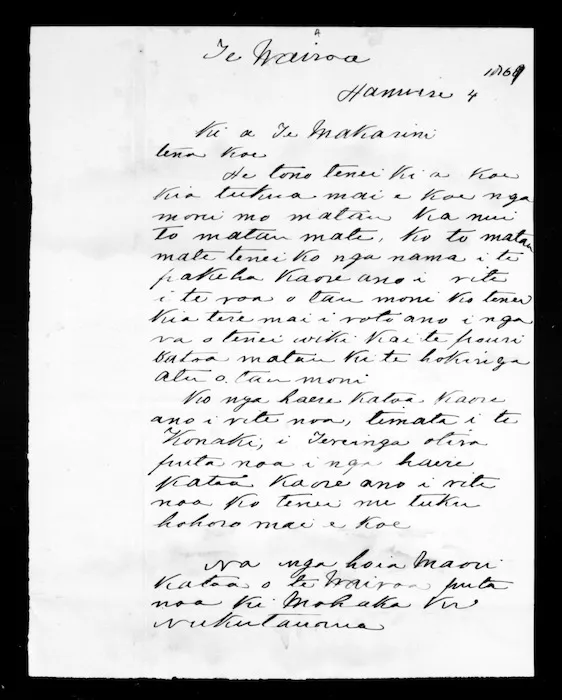 Te Wairoa
1869
Hanuere 4
Ki a Te Makarini
tena koe
He tono tenei ki a koe
kia tukua mai e koe nga
moni mo matau ka nui
to matau mate, ko to matau
mate tenei ko nga nama i te
pakeha kaore ano i rite
i te roa o tau moni ko tenei
kia tere mai i roto ano i nga
ra o tenei wiki kai te pouri
katoa matau ki te hokinga
atu o tau moni
Ko nga haere katoa kaore
ano i rite noa, timata i te
Konaki, i Tereinga otira
puta noa i nga haere
katoa kaore ano i rite
noa ko tenei me tuku
hohoro mai e koe
Na nga hoia Maori
katoa o te Wairoa puta
noa ki Mohaka ki
Nukutaurua